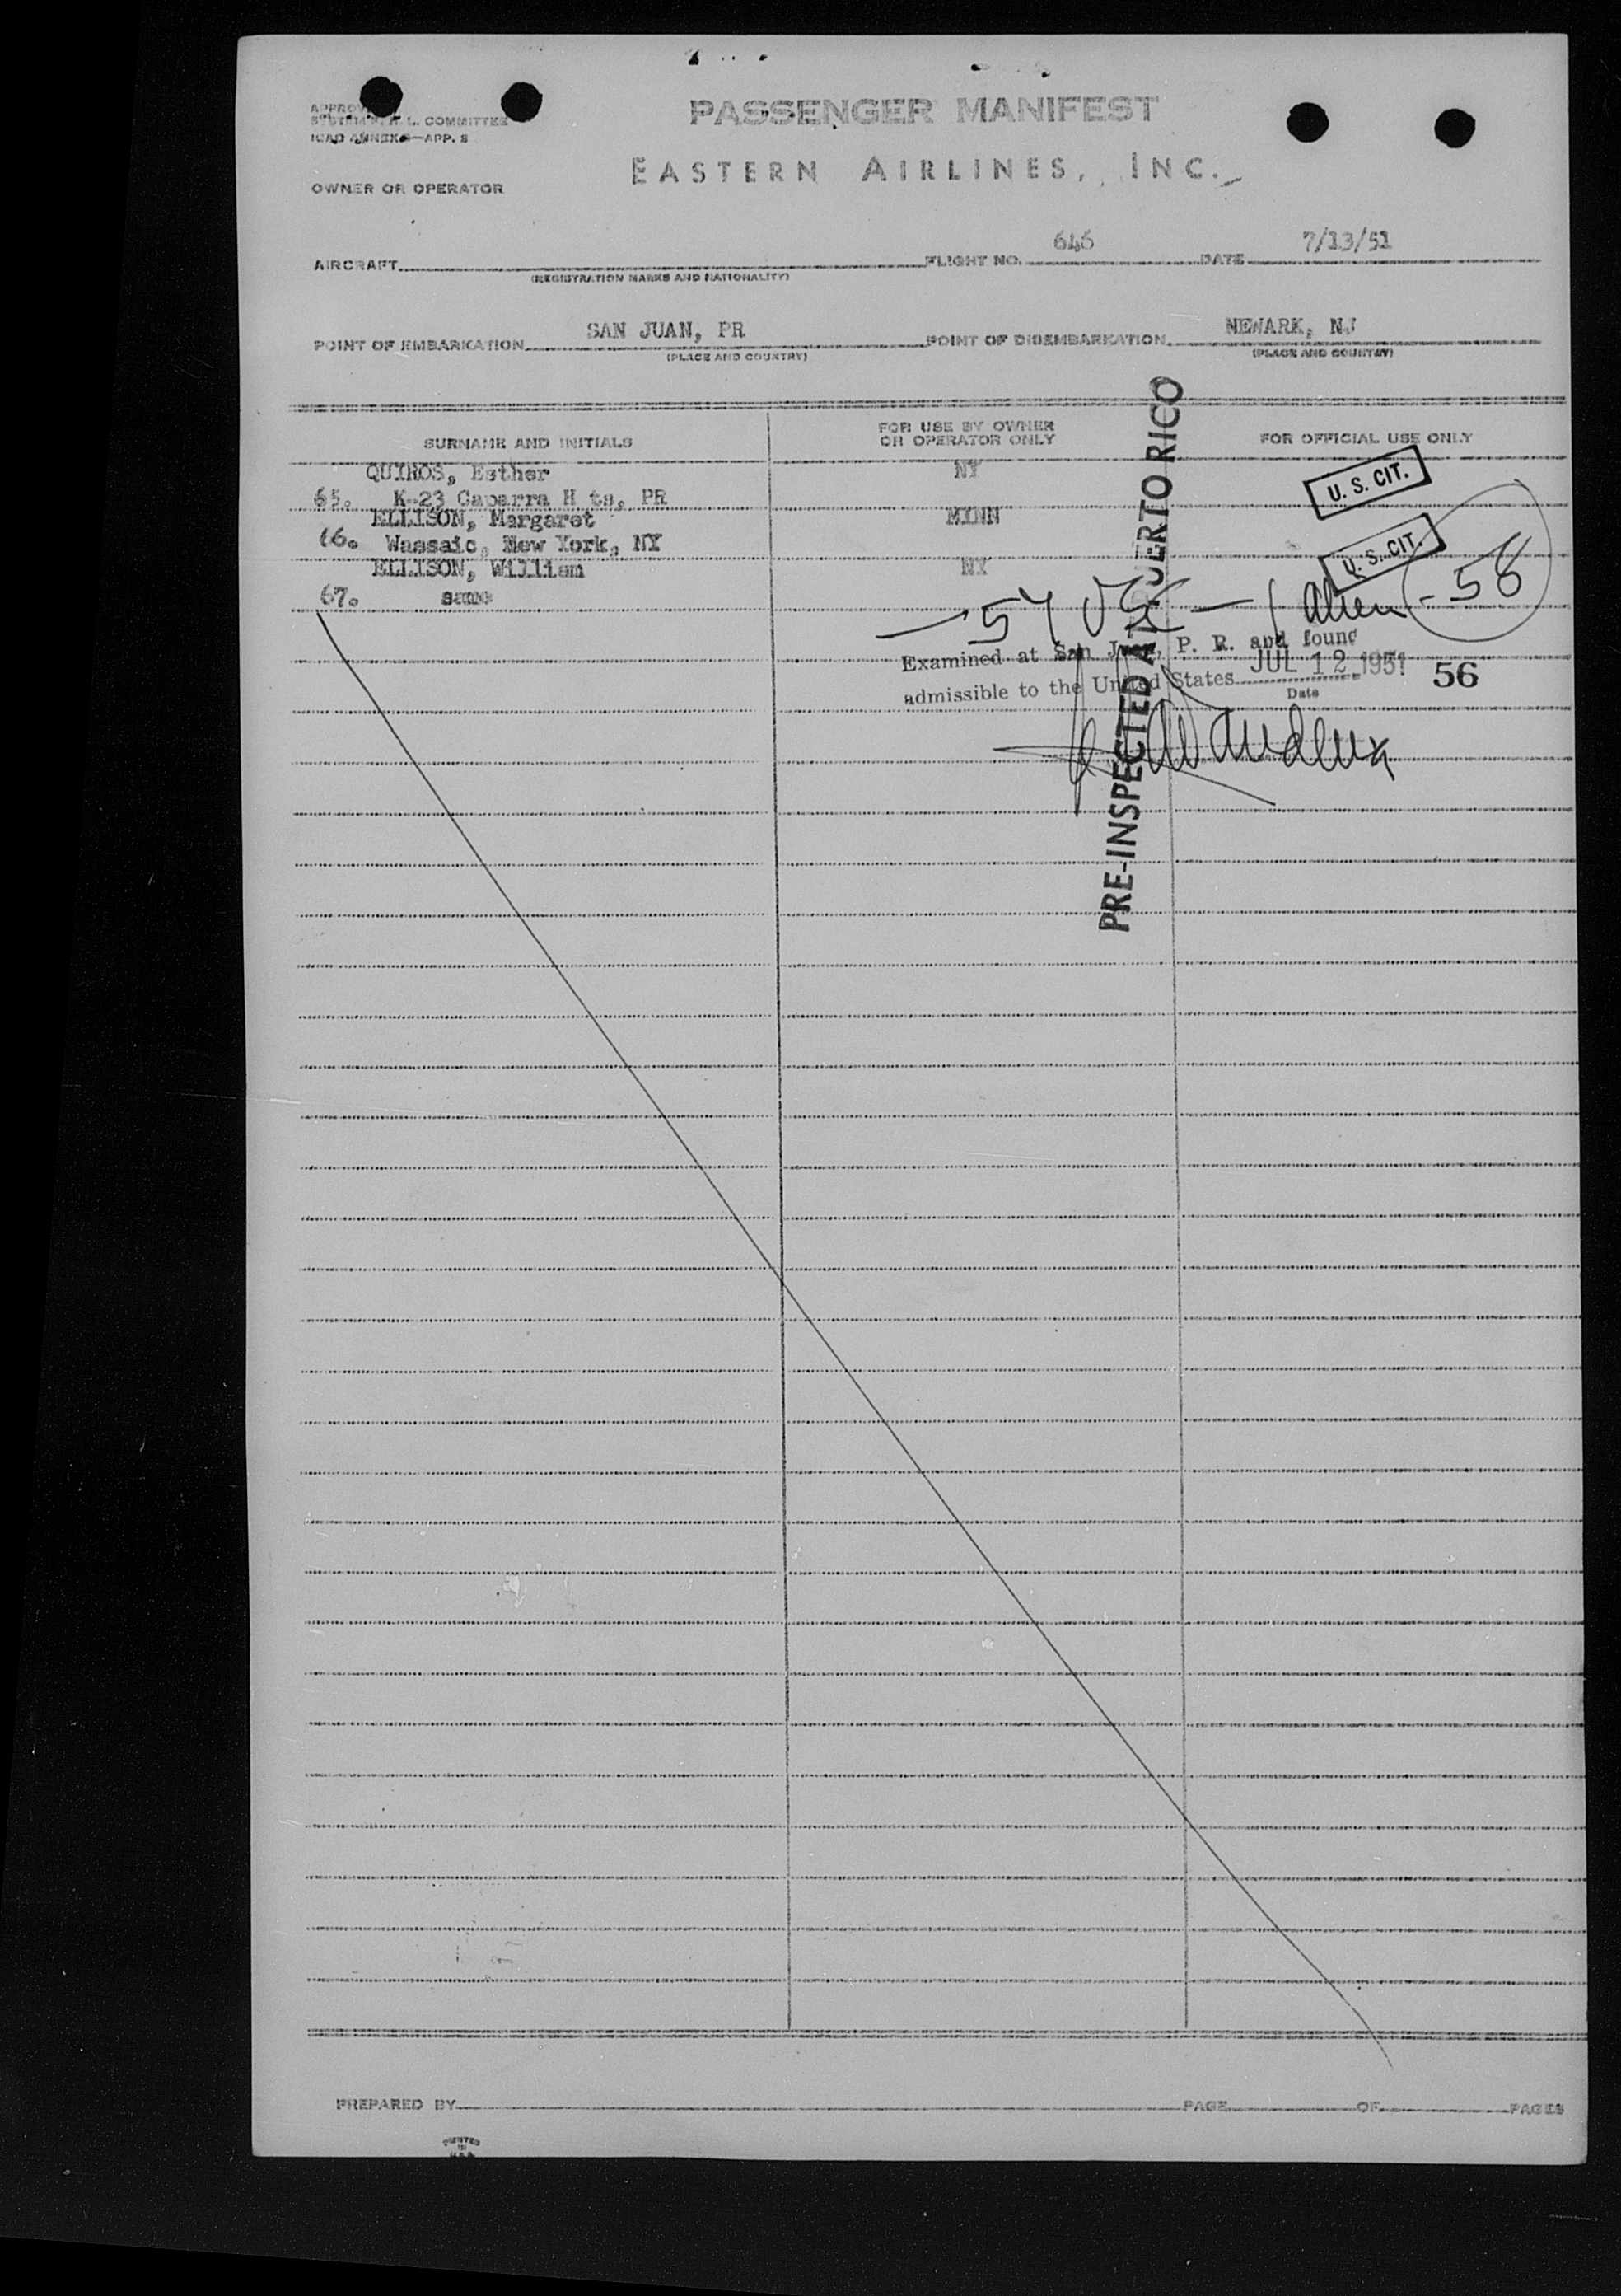 PASSENGER MANIFEST
L. COMMITTEE
APP. 8
EASTERN AIRLINES, INC.
OWNER OR OPERATOR
AIRCRAFT
(REGISTRATION MARKS AND NATIONALITY)
FLIGHT NO. 646
DATE 7/13/51
POINT OF EMBARKATION SAN JUAN, PR
(PLACE AND COUNTRY)
POINT OF DISEMBARKATION NEWARK, NJ
(PLACE AND COUNTRY)
SURNAME AND INITIALS
FOR USE BY OWNER
OR OPERATOR ONLY
FOR OFFICIAL USE ONLY
QUIROS, Esther NY U. S. CIT.
65. K-23 Caparra H ts, PR
ELLISON, Margaret MINN U. S. CIT.
66. Wassaic, New York, NY
ELLISON, William NY
67. same
57 US — 1 Alien - 58
Examined at San Juan, P. R. and found
admissible to the United States JUL 12 1951 56
Date
PRE-INSPECTED AT PUERTO RICO
PREPARED BY PAGE OF PAGES
PRINTED
IN
U.S.A.